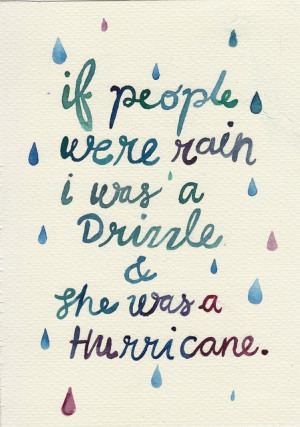 if people
were rain
i was a
Drizzle
&
she was a
Hurricane.